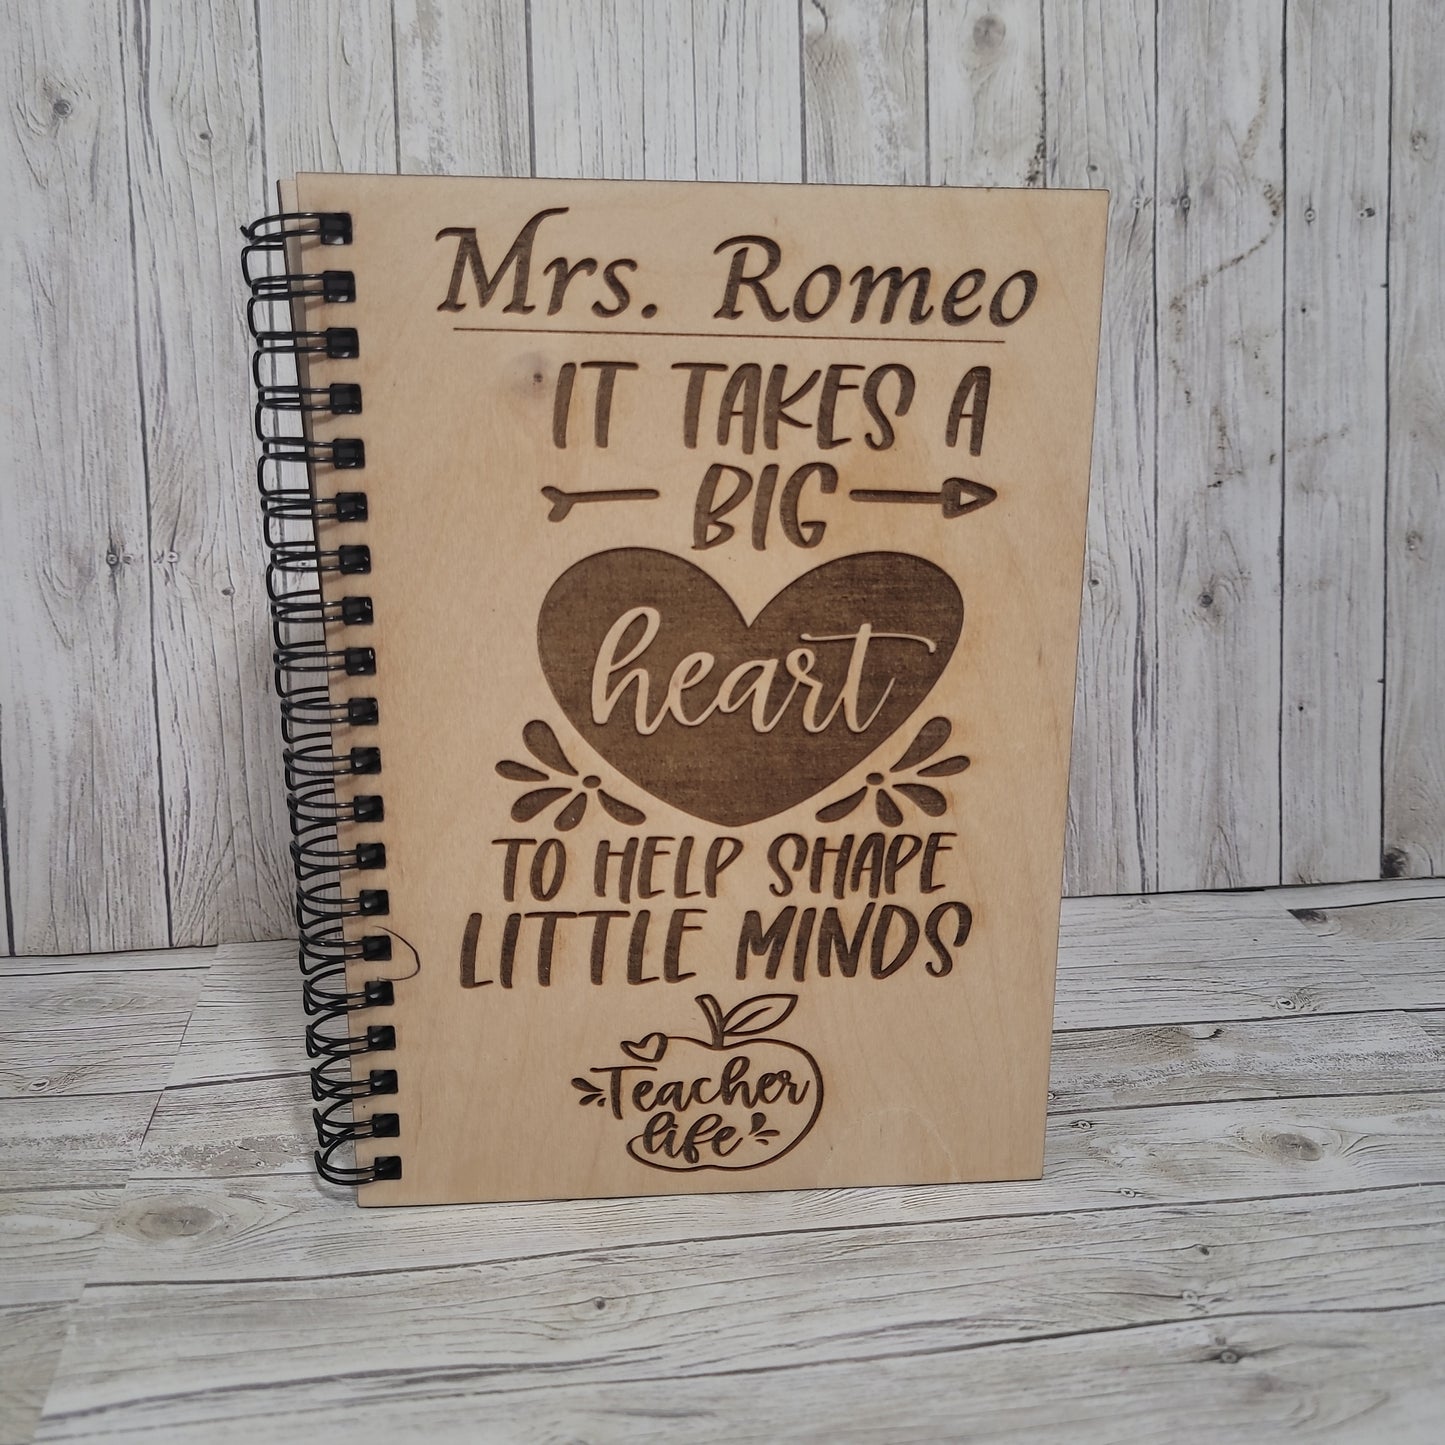 Mrs. Romeo
IT TAKES A
BIG
heart
TO HELP SHAPE
LITTLE MINDS
Teacher
life